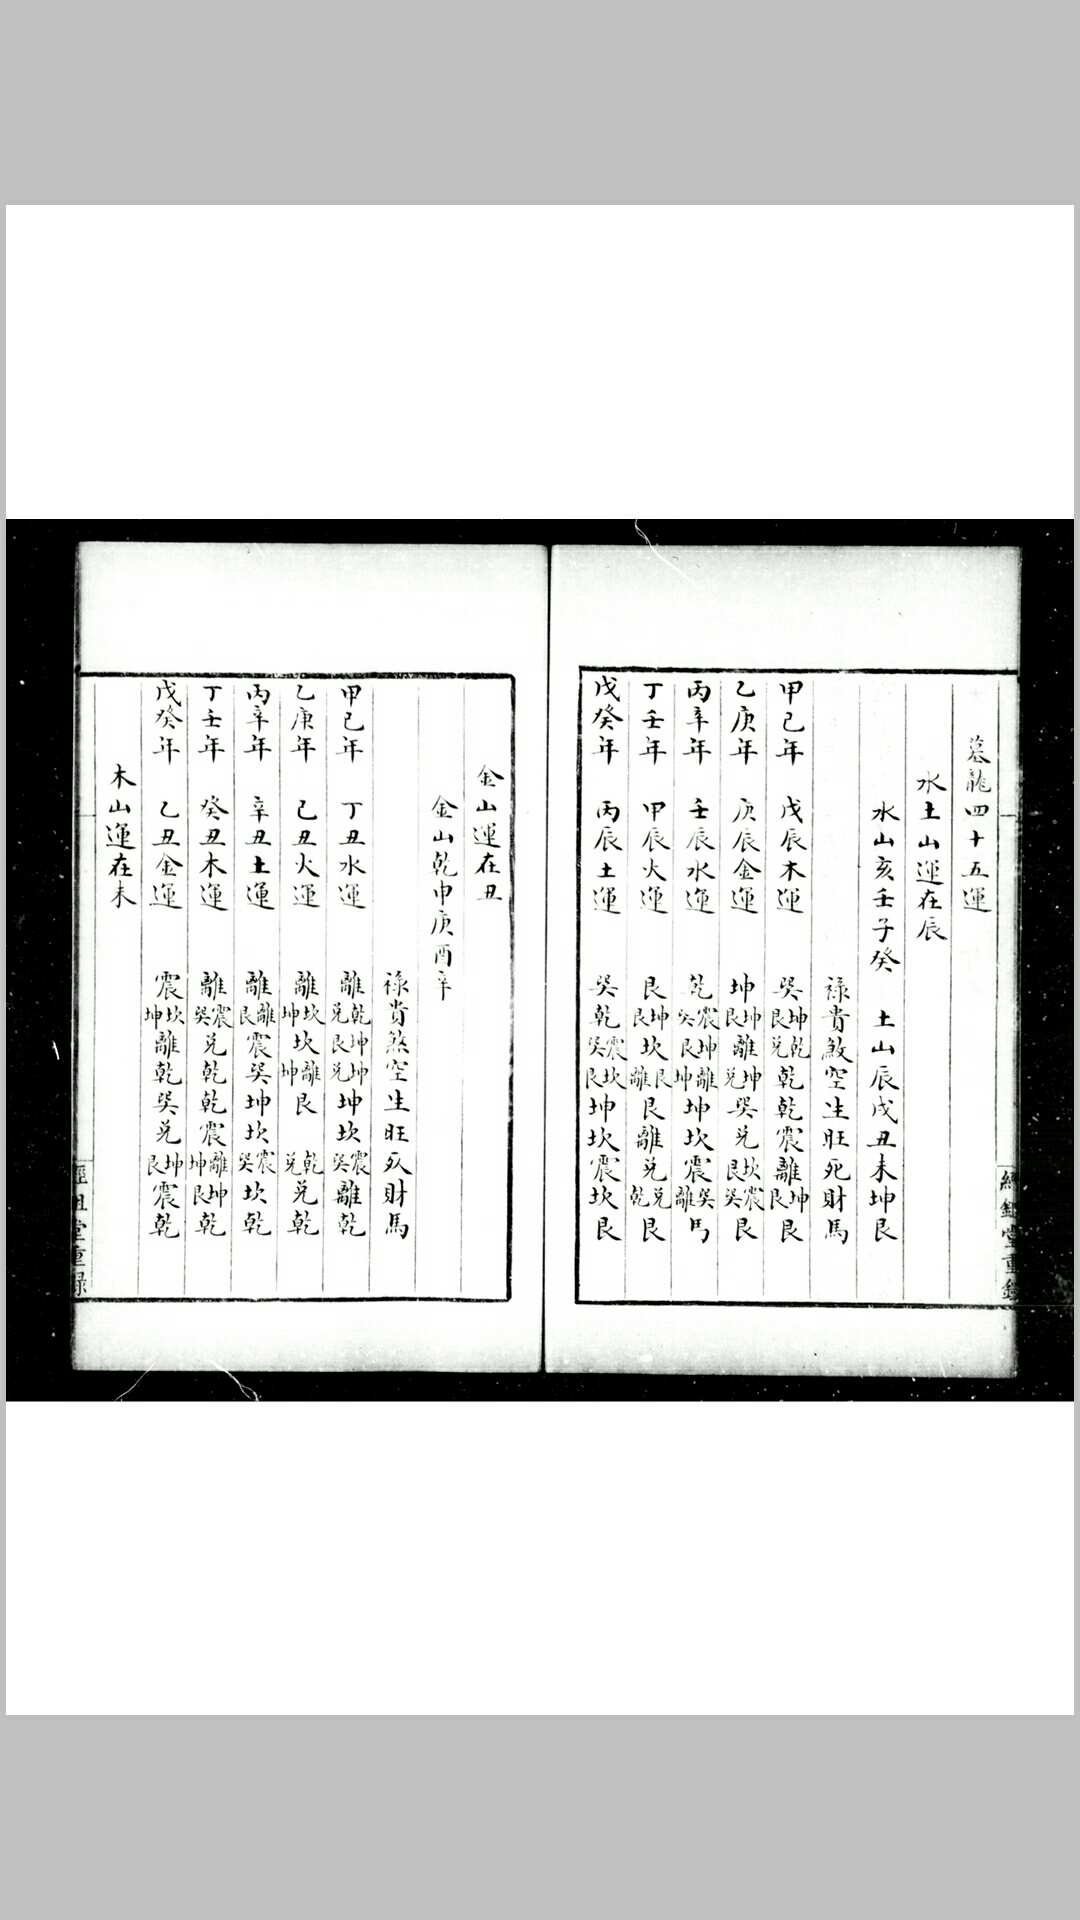 墓龍四十五運
水土山運在辰
水山亥壬子癸 土山辰戌丑未坤艮
祿貴煞空生旺死財馬
甲己年 戊辰木運 巽坤艮乾兌乾乾震離坤艮艮
乙庚年 庚辰金運 坤坤艮離坤兌巽兌坎艮震巽艮
丙辛年 壬辰水運 乾震巽坤艮離坤坤坎震巽離
丁壬年 甲辰火運 艮坤艮坎艮離艮離兌兌乾艮
戊癸年 丙辰土運 巽乾震巽坎艮坤坎震坎艮
金山運在丑
金山乾申庚酉辛
祿貴煞空生旺死財馬
甲己年 丁丑水運 離乾兌坤艮坤兌坤坎震巽離乾
乙庚年 己丑火運 離坎坤坎離坤艮乾兌兌乾
丙辛年 辛丑土運 離離艮震巽坤坎震巽坎乾
丁壬年 癸丑木運 離震巽兌乾乾震離坤坤艮乾
戊癸年 乙丑金運 震坎坤離乾巽兌坤艮震乾
木山運在未